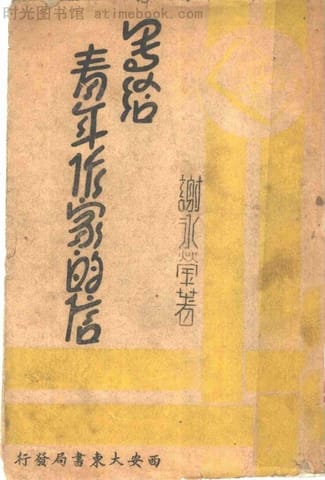 时光图书馆 atimebook.com
寫給
青年作家的信
謝氷瑩著
西安大東書局發行